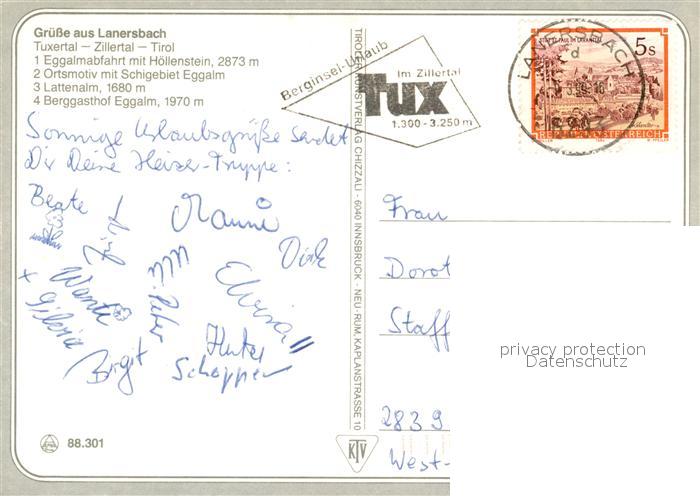 Grüße aus Lanersbach
Tuxertal — Zillertal — Tirol
1 Eggalmabfahrt mit Höllenstein, 2873 m
2 Ortsmotiv mit Schigebiet Eggalm
3 Lattenalm, 1680 m
4 Berggasthof Eggalm, 1970 m
Sonnige Urlaubsgrüße sendet
Dir Deine Heizer-Truppe:
Beate
Manni
Dirk
Elvira
Uli Peter
+ Silvia
Birgit
Schopper
88.301
TIROLER KUNSTVERLAG CHIZZALI - 6040 INNSBRUCK - NEU-RUM, KAPLANSTRASSE 10
KTV
Berginsel-Urlaub
Im Zillertal
Tux
1.300 - 3.250 m
LANERSBACH
5 S
REPUBLIK ÖSTERREICH
Frau
Dorot
Staff
2839
West-
privacy protection
Datenschutz